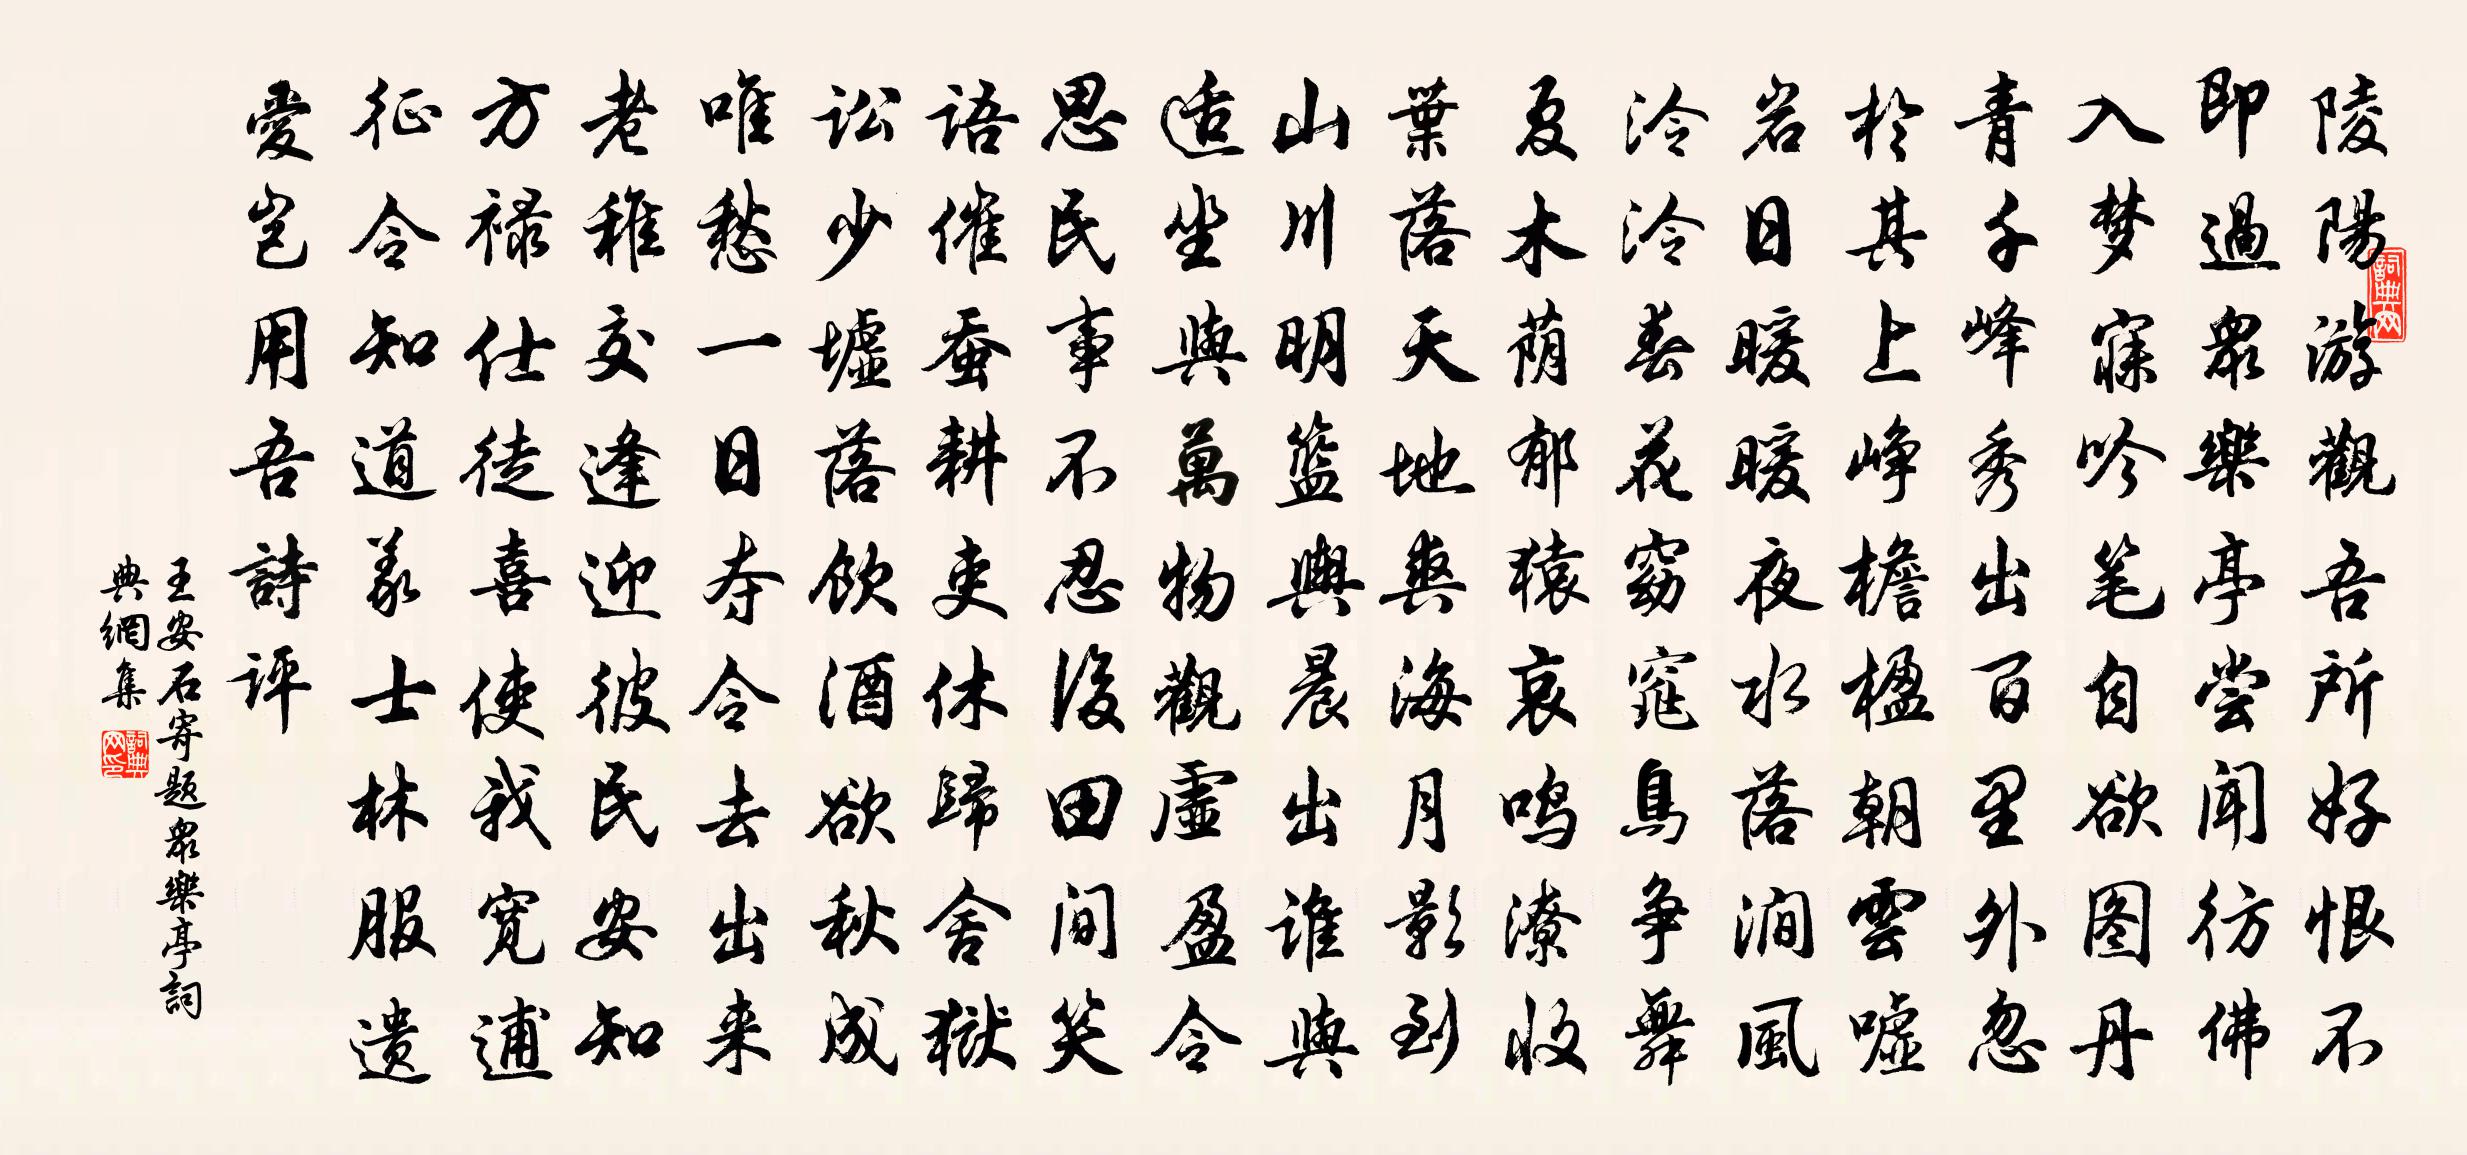 陵陽游觀吾所好恨不
即過眾樂亭尝闻彷佛
入梦寐吟笔自欲图丹
青千峰秀出百里外忽
於其上峥檐楹朝雲嘘
岩日暖暖夜水落澗風
泠泠春花窈窕鳥争舞
夏木荫郁猿哀鸣潦收
葉落天地爽海月影到
山川明籃輿晨出谁與
适坐與萬物觀虛盈令
思民事不忍後田间笑
语催蚕耕吏休歸舍獄
讼少墟落飲酒欲秋成
唯愁一日夺令去出来
老稚交逢迎彼民安知
方禄仕徒喜使我宽逋
征令知道義士林服遗
愛岂用吾詩評
王安石寄题眾樂亭詞
典網集
詞典网
詞典网印